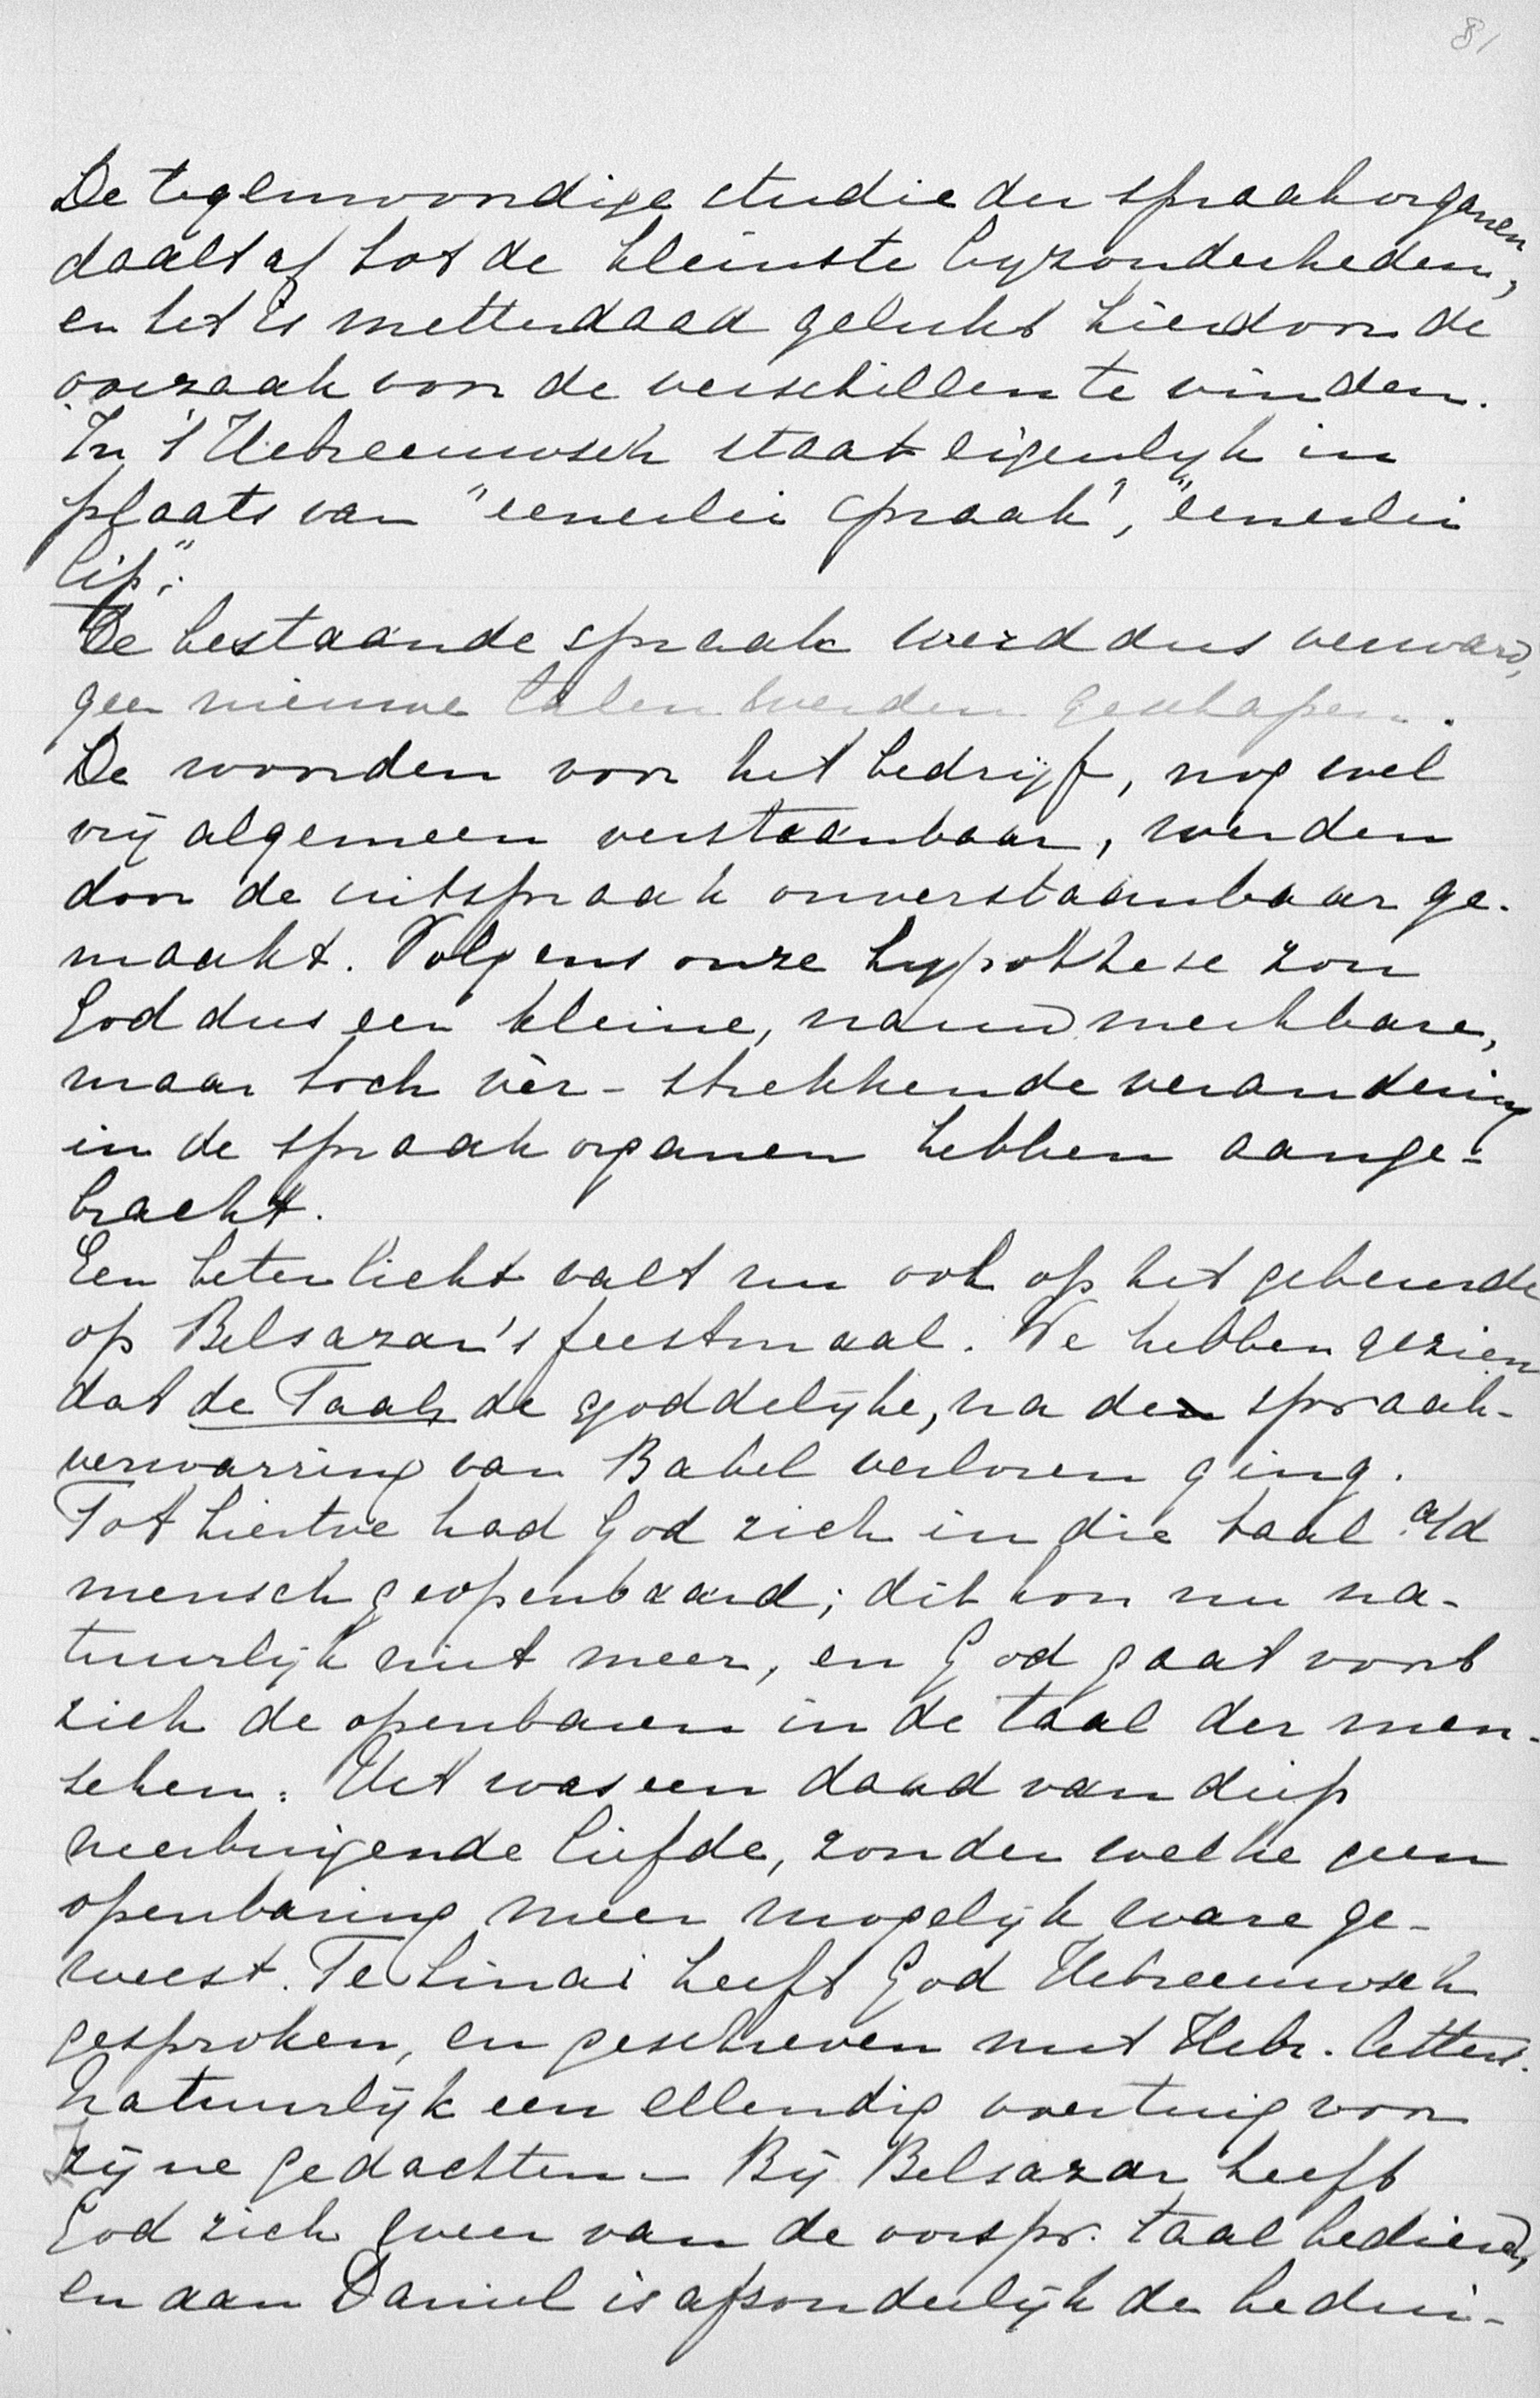 81
De tegenwoordige studie der spraakorganen
daalt af tot de kleinste byzonderheden,
en het is metterdaad gelukt hierdoor de
oorzaak voor de verschillen te vinden.
In 't Hebreeuwsch staat eigenlyk in
plaats van "eenerlei spraak", "eenerlei
lip".
De bestaande spraak werd dus verward,
geen nieuwe talen werden geschapen.
De woorden voor het bedrijf, nog wel
vrij algemeen verstaanbaar, werden
door de uitspraak onverstaanbaar ge-
maakt. Volgens onze hypothese zou
God dus een kleine, nauw merkbare,
maar toch vèr-strekkende verandering
in de spraakorganen hebben aange-
bracht.
Een beter licht valt nu ook op het gebeurde
op Belsazar's feestmaal. We hebben gezien
dat de Taal, de goddelijke, na de spraak-
verwarring van Babel verloren ging.
Tot hiertoe had God zich in die taal a/d
mensch geopenbaard; dit kon nu na-
tuurlijk niet meer, en God gaat voort
zich de openbaren in de taal der men-
schen. Het was een daad van diep
neerbuigende liefde, zonder welke geen
openbaring meer mogelijk ware ge-
weest. Te Sinai heeft God Hebreeuwsch
gesproken, en geschreven met Hebr. letters.
Natuurlijk een ellendig voertuig voor
Zijne gedachten. Bij Belsazar heeft
God zich weer van de oorspr. taal bediend,
en aan Daniel is afzonderlijk de bedui-